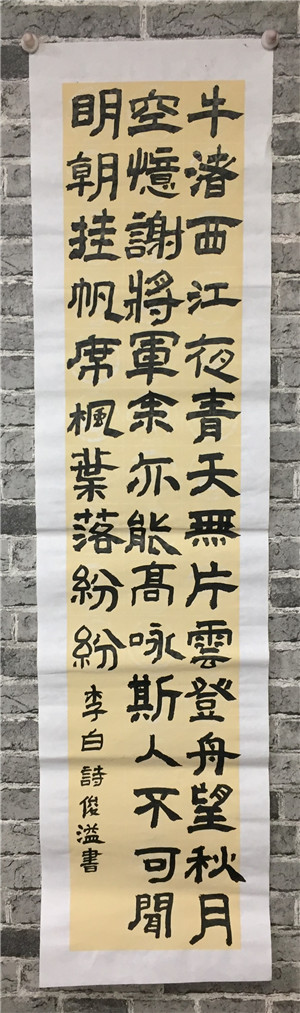 牛渚西江夜青天無片雲登舟望秋月
空憶謝將軍余亦能高咏斯人不可聞
明朝挂帆席楓葉落紛紛
李白詩俊溢書